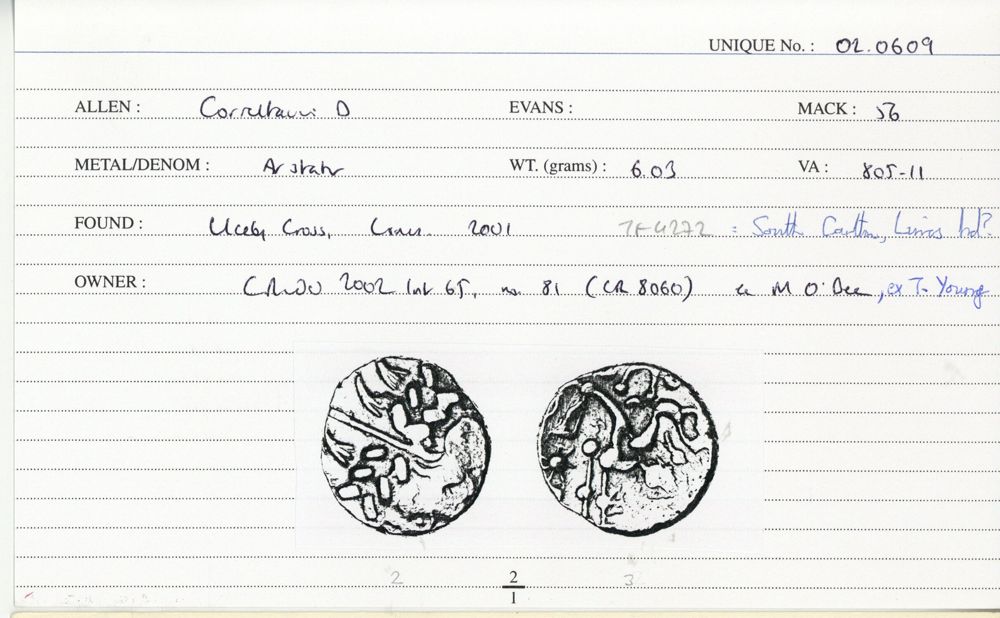 UNIQUE No. : 02.0609
ALLEN : Corieltauvi D EVANS : MACK : 56
METAL/DENOM : AV stater WT. (grams) : 6.03 VA : 805-11
FOUND : Ulceby Cross, Lincs. 2001 TF4272 = South Carlton, Lincs hd?
OWNER : CRWDU 2002 list 65, no. 81 (CR 8060) ex M O'Bee, ex T. Young
2 2/1 3